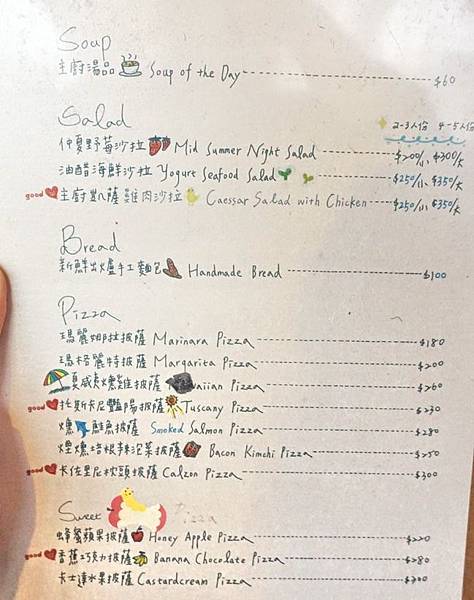 Soup
主廚湯品 Soup of the Day $60
Salad
2-3人份 4-5人份
仲夏野莓沙拉 Mid Summer Night Salad $200/小 $300/大
油醋海鮮沙拉 Yogurt Seafood Salad $250/小 $350/大
good 主廚凱薩雞肉沙拉 Caessar Salad with Chicken $250/小 $350/大
Bread
新鮮出爐手工麵包 Handmade Bread $100
Pizza
瑪麗娜拉披薩 Marinara Pizza $180
瑪格麗特披薩 Margarita Pizza $200
夏威夷燻雞披薩 waiian Pizza $260
good 托斯卡尼豔陽披薩 Tuscany Pizza $230
燻鮭魚披薩 Smoked Salmon Pizza $280
煙燻培根辣泡菜披薩 Bacon Kimchi Pizza $250
good 卡佐里尼枕頭披薩 Calzon Pizza $300
Sweet Pizza
蜂蜜蘋果披薩 Honey Apple Pizza $220
good 香蕉巧克力披薩 Banana Chocolate Pizza $280
卡士達水果披薩 Castardcream Pizza $300